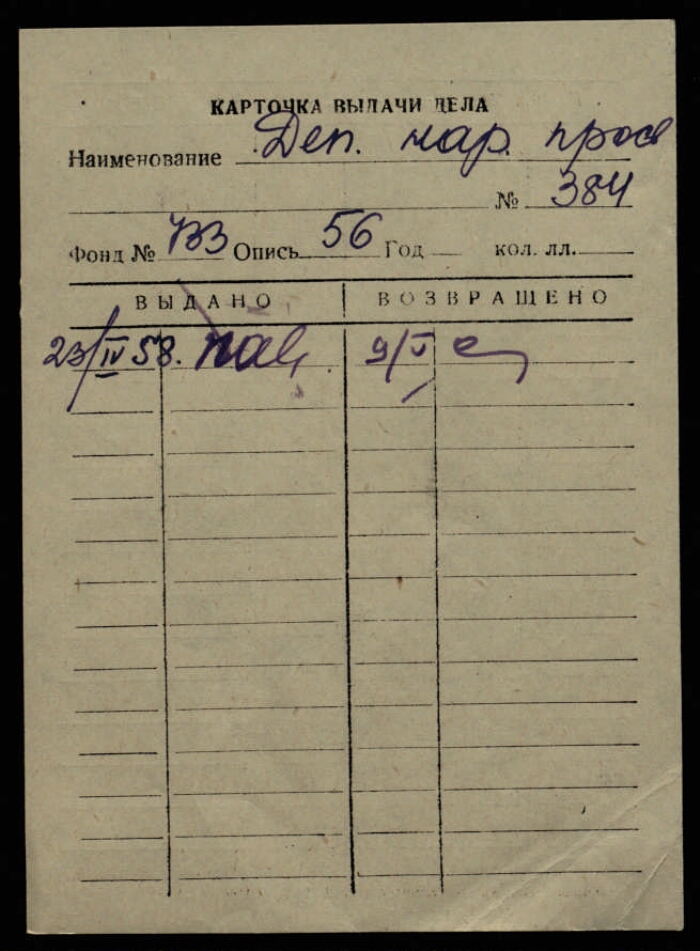 КАРТОЧКА ВЫДАЧИ ДЕЛА
Наименование Деп. нар. просв
№ 384
Фонд № 733 Опись 56 Год кол. лл.
ВЫДАНО ВОЗВРАЩЕНО
23/IV 58. 9/V